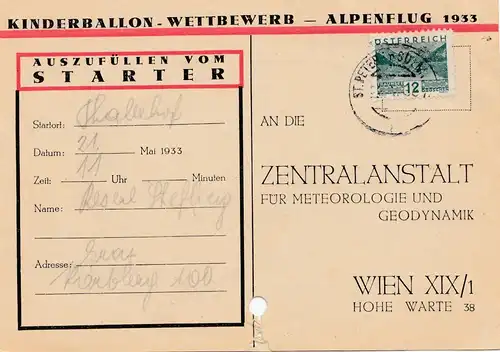 KINDERBALLON-WETTBEWERB — ALPENFLUG 1933
AUSZUFÜLLEN VOM
STARTER
Startort: Thalerhof
Datum: 21. Mai 1933
Zeit: 11 Uhr Minuten
Name:
Adresse: Graz
100
ÖSTERREICH
12
ST. PETER
AN DIE
ZENTRALANSTALT
FÜR METEOROLOGIE UND
GEODYNAMIK
WIEN XIX/1
HOHE WARTE 38